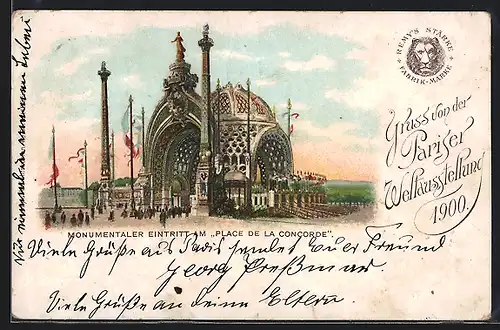 REMY'S STÄRKE
FABRIK-MARKE
Gruss von der
Pariser
Weltausstellung
1900.
MONUMENTALER EINTRITT AM „PLACE DE LA CONCORDE".
Viele Grüße aus Paris sendet Euer Freund
Georg Preßmar.
Viele Grüße an deine Eltern.
einmal in meinem Leben